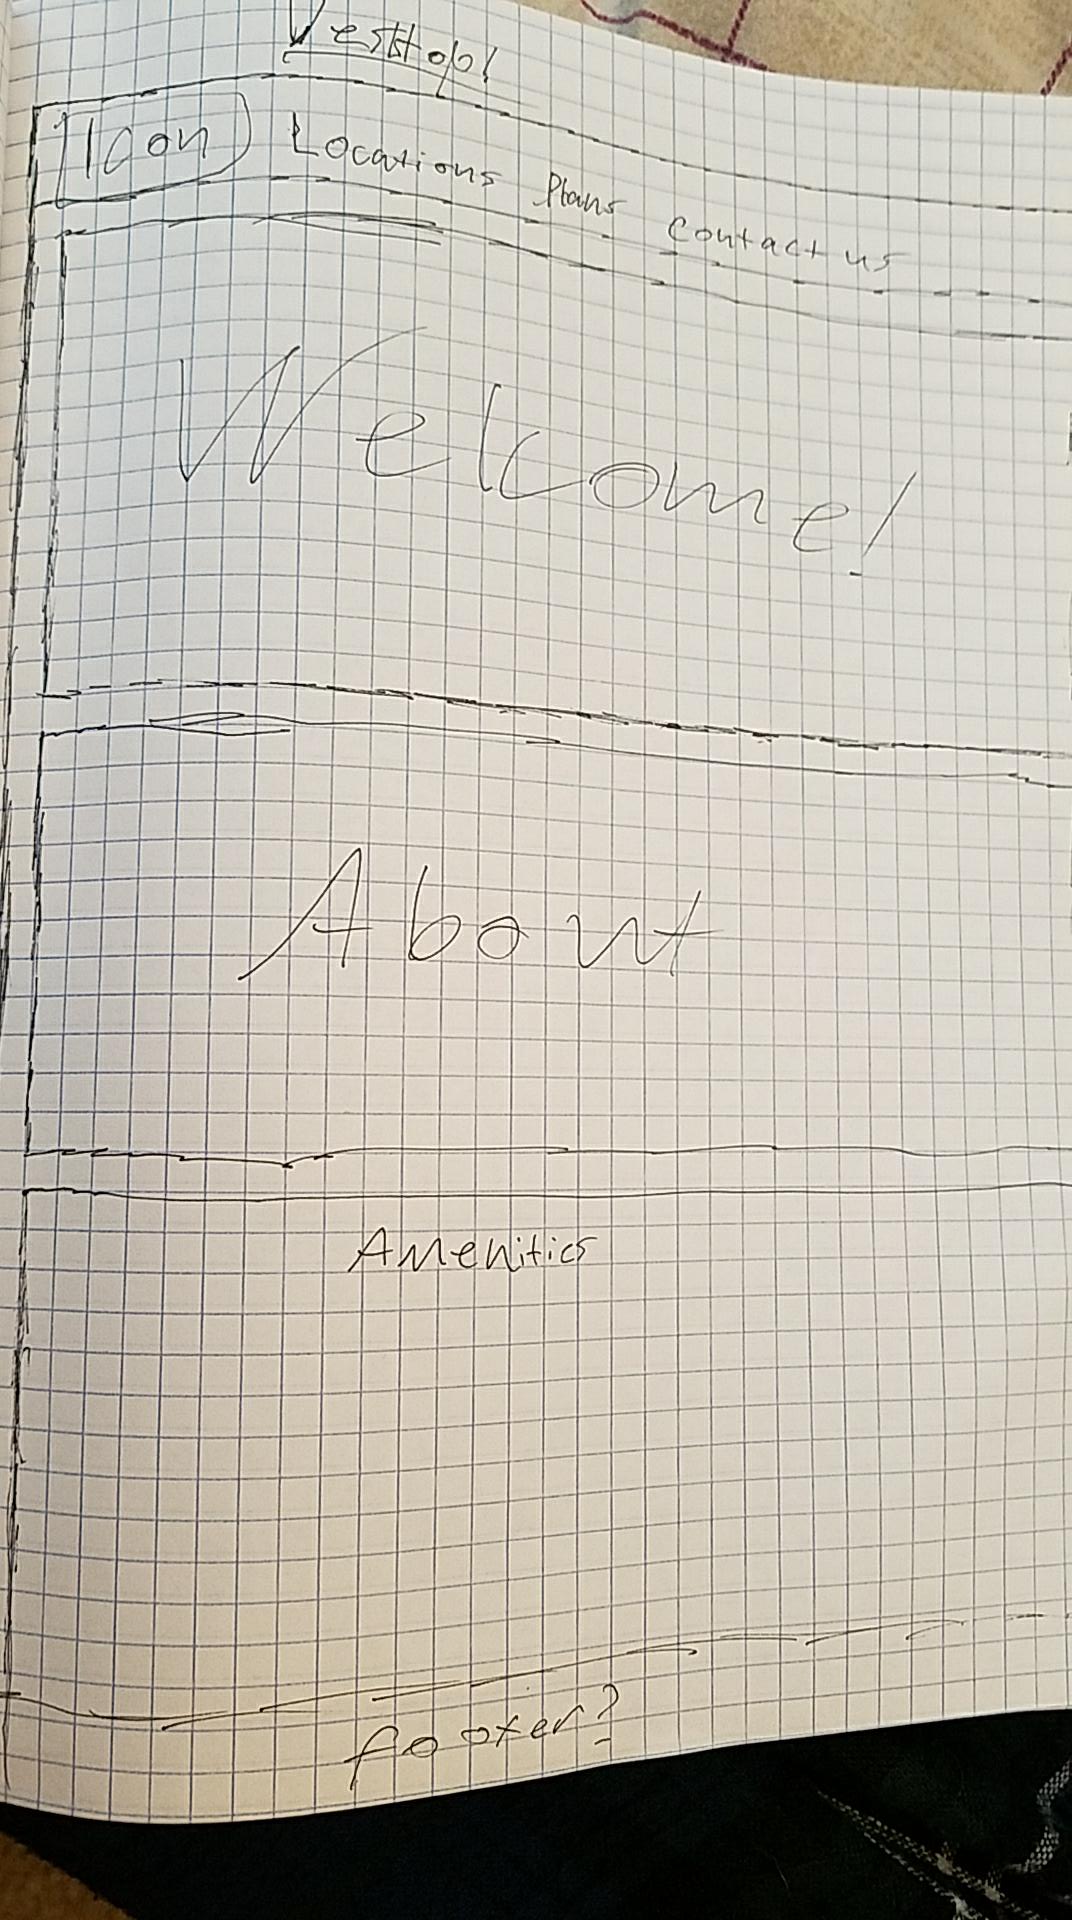 Desktop!
Icon Locations Plans Contact us
Welcome!
About
Amenities
footer?